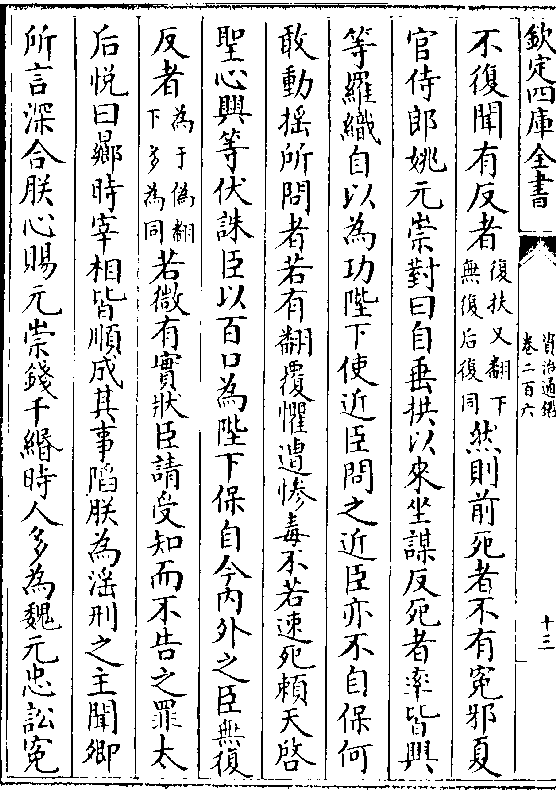 欽定四庫全書
資治通鑑
卷二百六
十三
不復聞有反者復扶又翻下
無復后復同然則前死者不有冤邪夏
官侍郎姚元崇對曰自垂拱以來坐謀反死者率皆興
等羅織自以為功陛下使近臣問之近臣亦不自保何
敢動揺所問者若有翻覆懼遭慘毒不若速死頼天啓
聖心興等伏誅臣以百口為陛下保自今内外之臣無復
反者為于偽翻
下多為同若微有實狀臣請受知而不告之罪太
后悦曰曏時宰相皆順成其事陷朕為淫刑之主聞卿
所言深合朕心賜元崇錢千緡時人多為魏元忠訟冤